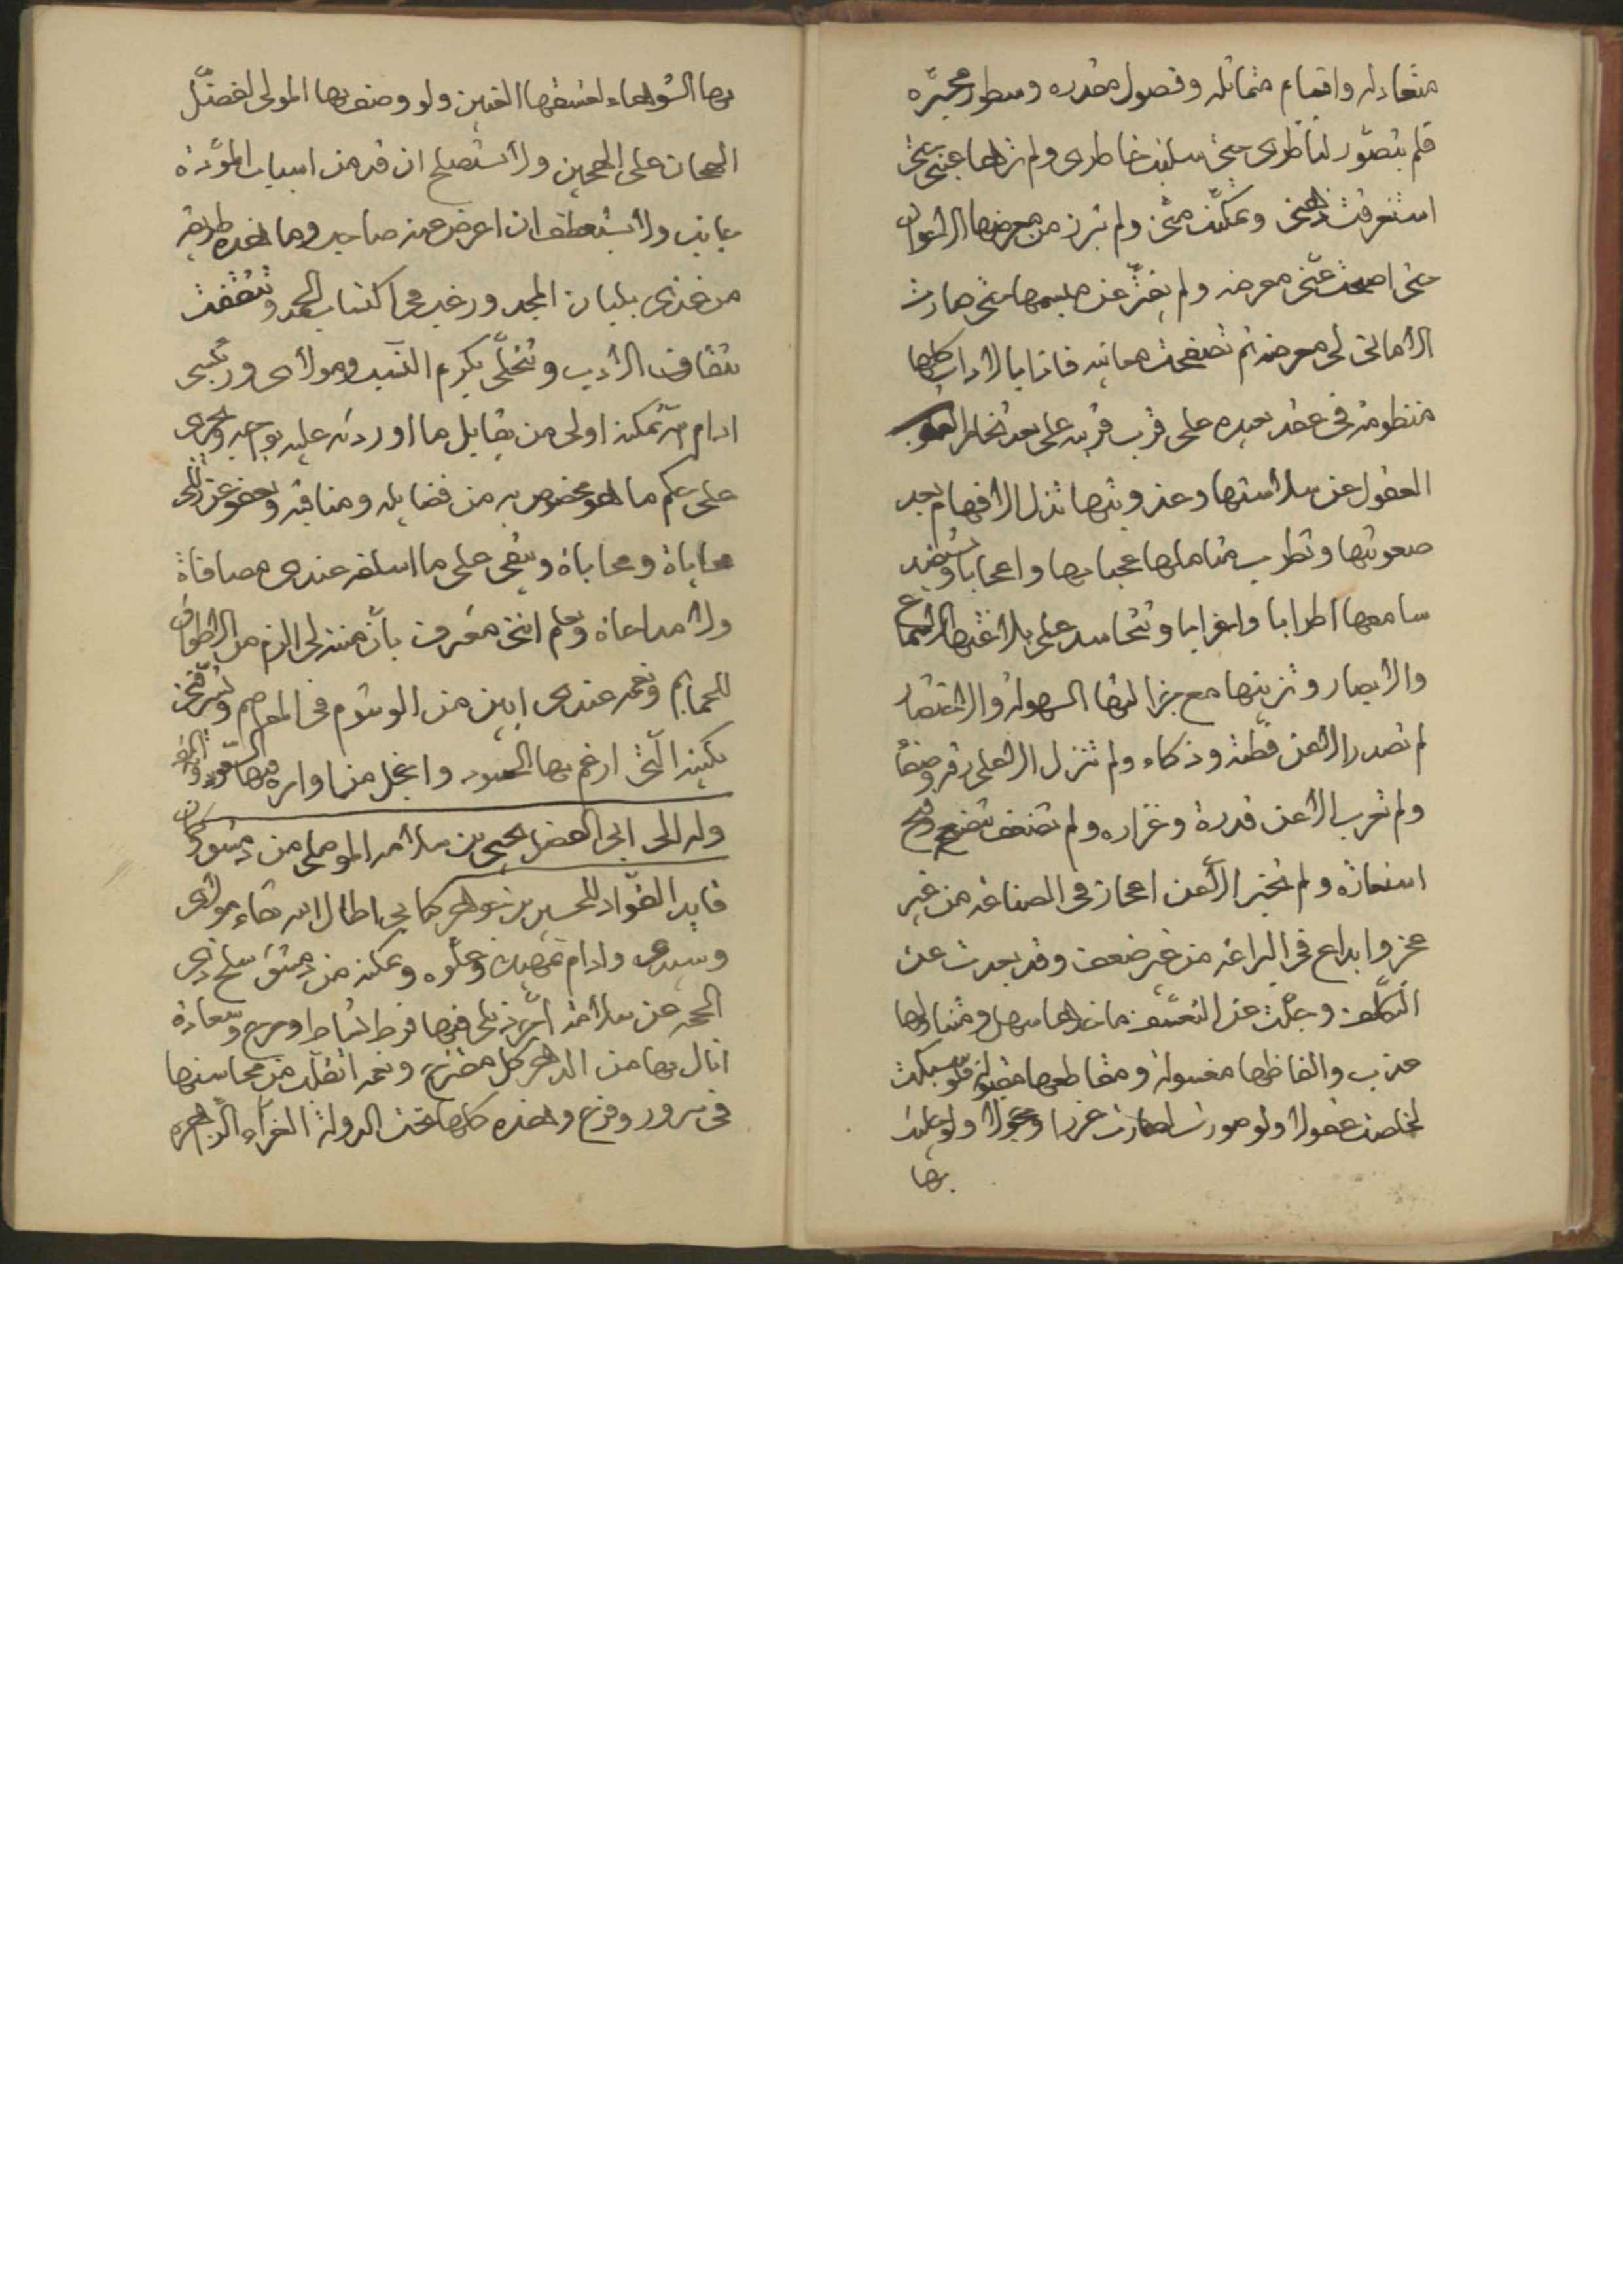 متعادله واقسام متماثله وفصول مقدره وسطور محبره
فلم يتصور لناظرى حتى سلبت خاطرى ولم ترها عينى حتى
استغرقت ذهنى وتمكنت منى ولم تبرز من معرضها الا لاعوان
حتى اصبحت عنى معرضه ولم تفتر عن مبسمها حتى صارت
الامانى لى معرضه ثم تصفحت معانيه فاذا بالاداب كلها
منظومة فى عقد بعيده على قرب قريبه على بعد تخاطر
العقول عن سلاستها وعذوبتها تزل الافهام بعد
صعوبتها وتطرب متاملها عجبا بها واعجابا وتستفيد
سامعها اطرابا واغرابا وتتحاسد على بلاغتها الاسماع
والابصار وتزينها مع جزالتها السهولة والاختصار
لم تصدر الا عن فطنة وذكاء ولم تنزل الا على رقة وصفا
ولم تغرب الا عن قدرة وغزاره ولم تضعف
استعارة ولم تخبر الا عن اعجاز فى الصناعة من غير
عجز وابداع فى البراعة من غير ضعف وقد بعدت عن
التكلف وجلت عن التعسف ماخذها سهل ومتناولها
عذب والفاظها مغسولة ومقاطعها مقبولة فلو سبكت
لخلصت عقولا ولو صورت لصارت غررا وحجولا ولو حليت
بها
بها الشوهاء لعشقها القبين ولو وصف بها المولى لفضل
الهجان على الهجين ولا تستصلح ان قد من اسباب المودة
بجانب ولا تستعطف ان اعرض عنه صاحب وما هذه طريقة
من غذى بلبان المجد ورغب فى اكتساب الحمد وتثقفت
بثقاف الادب وتحلى بكرم النسب ومولاى ورئيسى
ادام الله تمكينه اولى من يقابل ما اوردته عليه بوجبه ويجرى
على حكم ما هو مخصوص به من فضايله ومناقبه ويعفو عن زللى
محاباة ومحاباة ويبقى على ما اسلفه عندى مصافاة
ولا مداعاة ويعلم اننى معترف بان مننه لى الزم من الاطواق
للحمايم ونعمه عندى ابين من الوشوم فى المعاصم ويشرفنى
بكتبه التى ارغم بها الحسود واخجل من اوانره فيها
وله الى ابى الفضل يحيى بن سلامه الموصلى من دمشق وكان
قايد القواد للحسين بن جوهر كتابى اطال الله بقاء مولاى
وسيدى وادام تمهيده وعلوه وتمكنه من دمشق سلخ ذى
الحجه عن سلامة اجر ذيلى فيها فرط نشاط ومرح وسعادة
انال بها من الدهر كل مقترح ونعمة اتقلب من محاسنها
فى سرور وفرح وهذه كلها تحت الدولة الغراء الزاهره